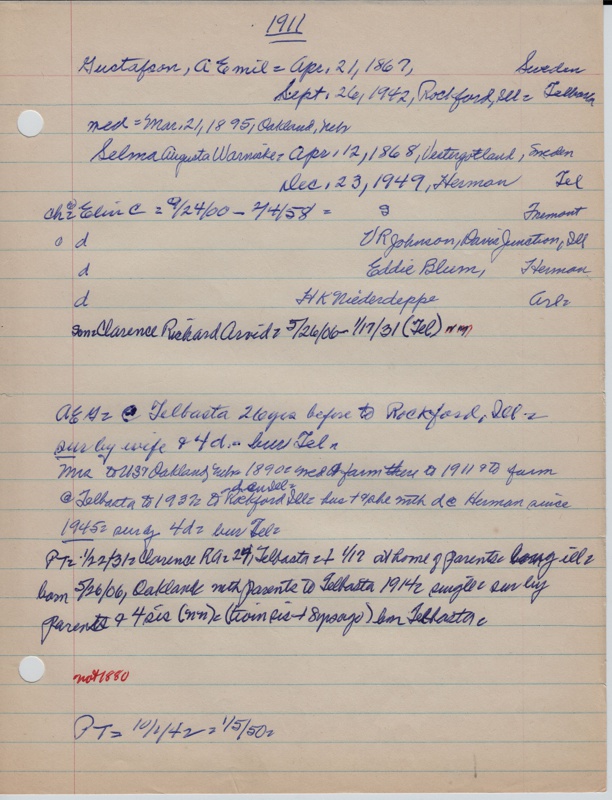 1911
Gustafson, A Emil = Apr. 21, 1867, Sweden
Sept. 26, 1942, Rockford, Ill = Telbasta
med = Mar. 21, 1895, Oakland, Neb
Selma Augusta Warnske = Apr. 12, 1868, Vestergotland, Sweden
Dec. 23, 1949, Herman Tel
ch = Elin C = 9/24/00 - 2/4/58 = S Fremont
d V R Johnson, Davis Junction, Ill
d Eddie Blum, Herman
d H K Niederdeppe Arl =
son = Clarence Richard Arvid = 5/26/06 - 1/17/31 (Tel) nm
A E G = @ Telbasta 26 yrs before to Rockford, Ill =
sur by wife & 4 d. = bur Tel =
Mrs to US? Oakland, Nebr 1890 = med & farm there to 1911 & to farm
@ Telbasta to 1937 = to Rockford Ill = hus + & she mth d @ Herman since
1945 = sur by 4d = bur Tel =
PT = 1/22/31 = Clarence RG = 24, Telbasta = + 1/17 at home of parents = long ill =
born 5/26/06, Oakland = mth parents to Telbasta 1914 = single = sur by
parents & 4 sis (nn) = (twin sis + 8 yrs ago) bur Telbasta =
not 1880
PT = 10/1/42 = 1/5/50 =